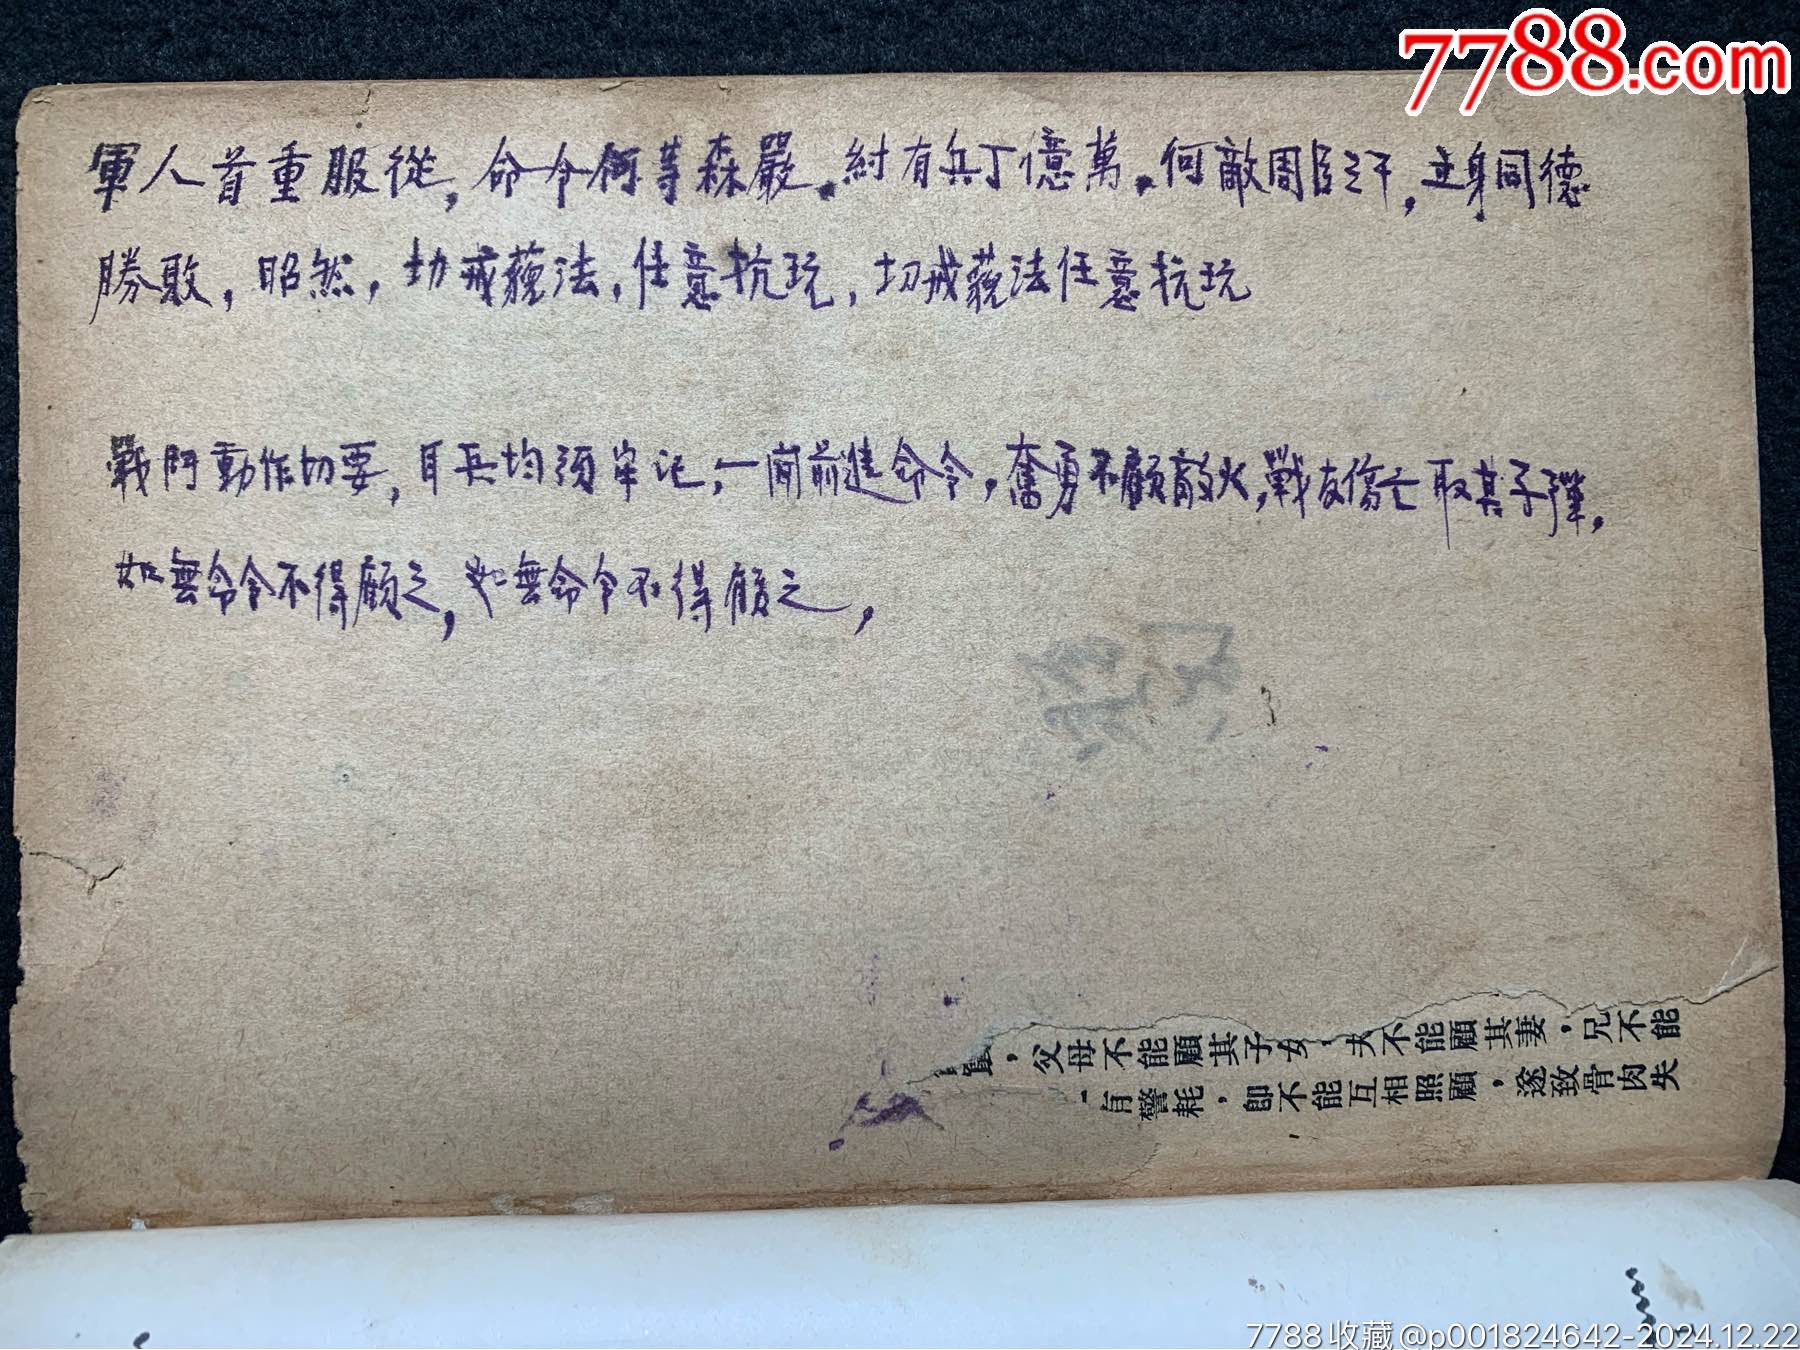 7788.com
軍人首重服從，命令何等森嚴。紂有兵丁億萬。何敵周臣三千，立身同德
勝敗，昭然，切戒藐法，任意抗玩，切戒藐法任意抗玩
戰鬥動作切要，耳兵均須牢记，一闻前進命令，奮勇不顧敵火，戰友傷亡取其子彈，
如無命令不得顧之，如無命令不得顧之，
，父母不能顧其子女，夫不能顧其妻，兄不能
有警耗，卽不能互相照顧，遂致骨肉失
7788收藏@p001824642-2024.12.22